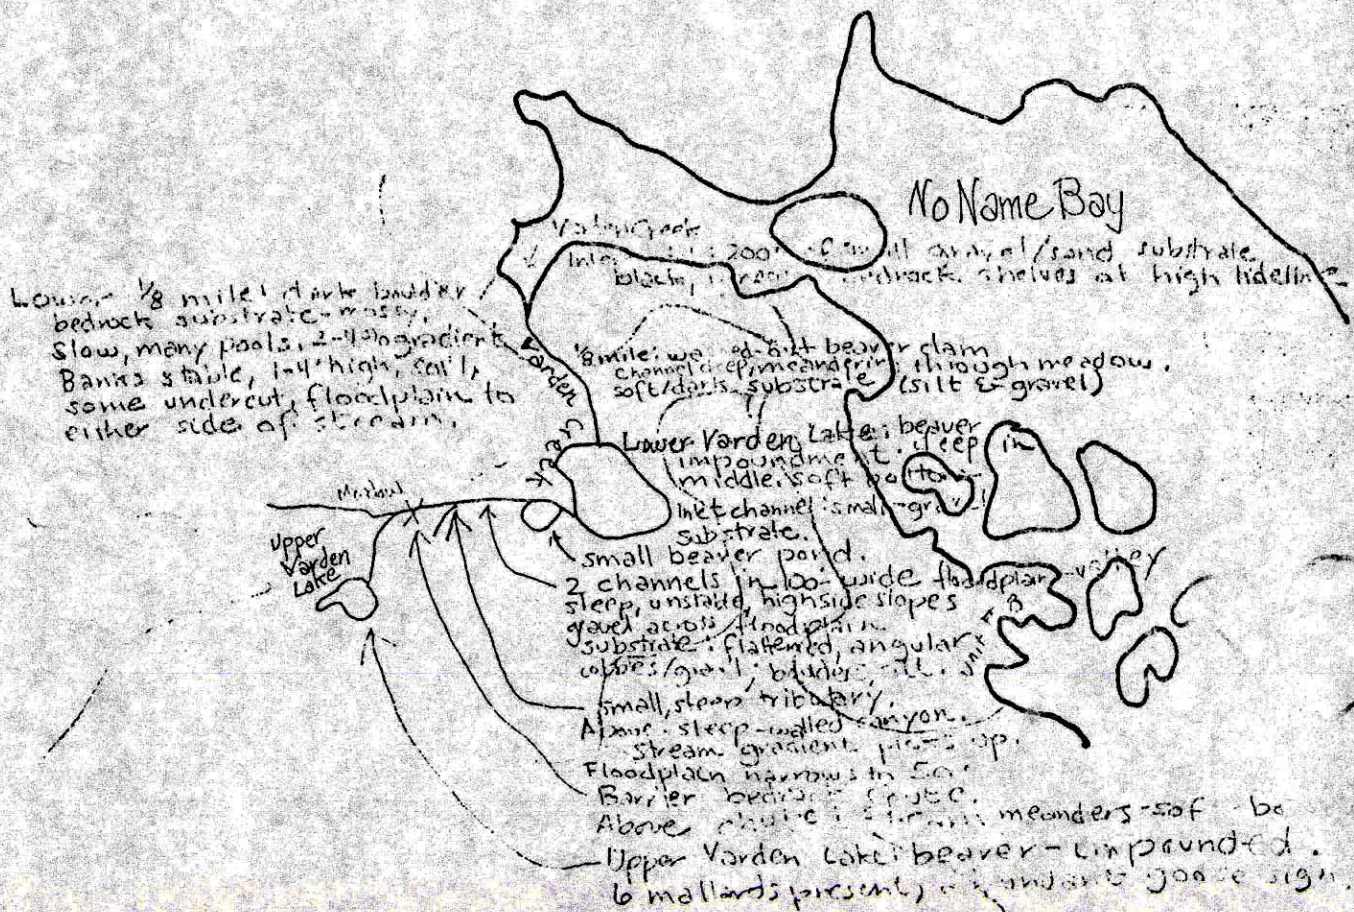 No Name Bay
Varden Creek
200' small gravel/sand substrate
black, bedrock shelves at high tideline
Lower 1/8 mile: dark boulder
bedrock substrate-mossy.
Slow, many pools, 2-4% gradient
Banks stable, 1-4' high, soil,
some undercut, floodplain to
either side of stream.
Varden Creek
1/8 mile: beaver dam
channel deep, meandering through meadow.
soft/dark substrate (silt & gravel)
Lower Varden Lake: beaver
impoundment. deep in
middle. soft bottom
Inlet channel: small-gravel
substrate.
Meadow
Upper
Varden
Lake
small beaver pond.
2 channels in 100' wide floodplain-valley
steep, unstable, high side slopes
gravel across floodplain
substrate: flattened, angular
cobbles/gravel; boulders,
small, steep tributary.
Above: steep-walled canyon.
Stream gradient picks up.
Floodplain narrows to 50'
Barrier bedrock chute.
Above chute: stream meanders-
Upper Varden Lake: beaver-impounded.
6 mallards present, goose sign.